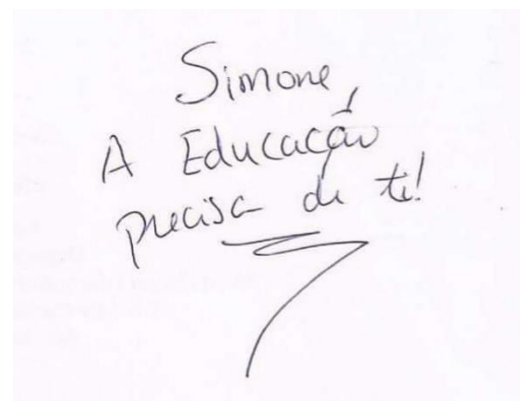 Simone,
A Educação
precisa de ti!